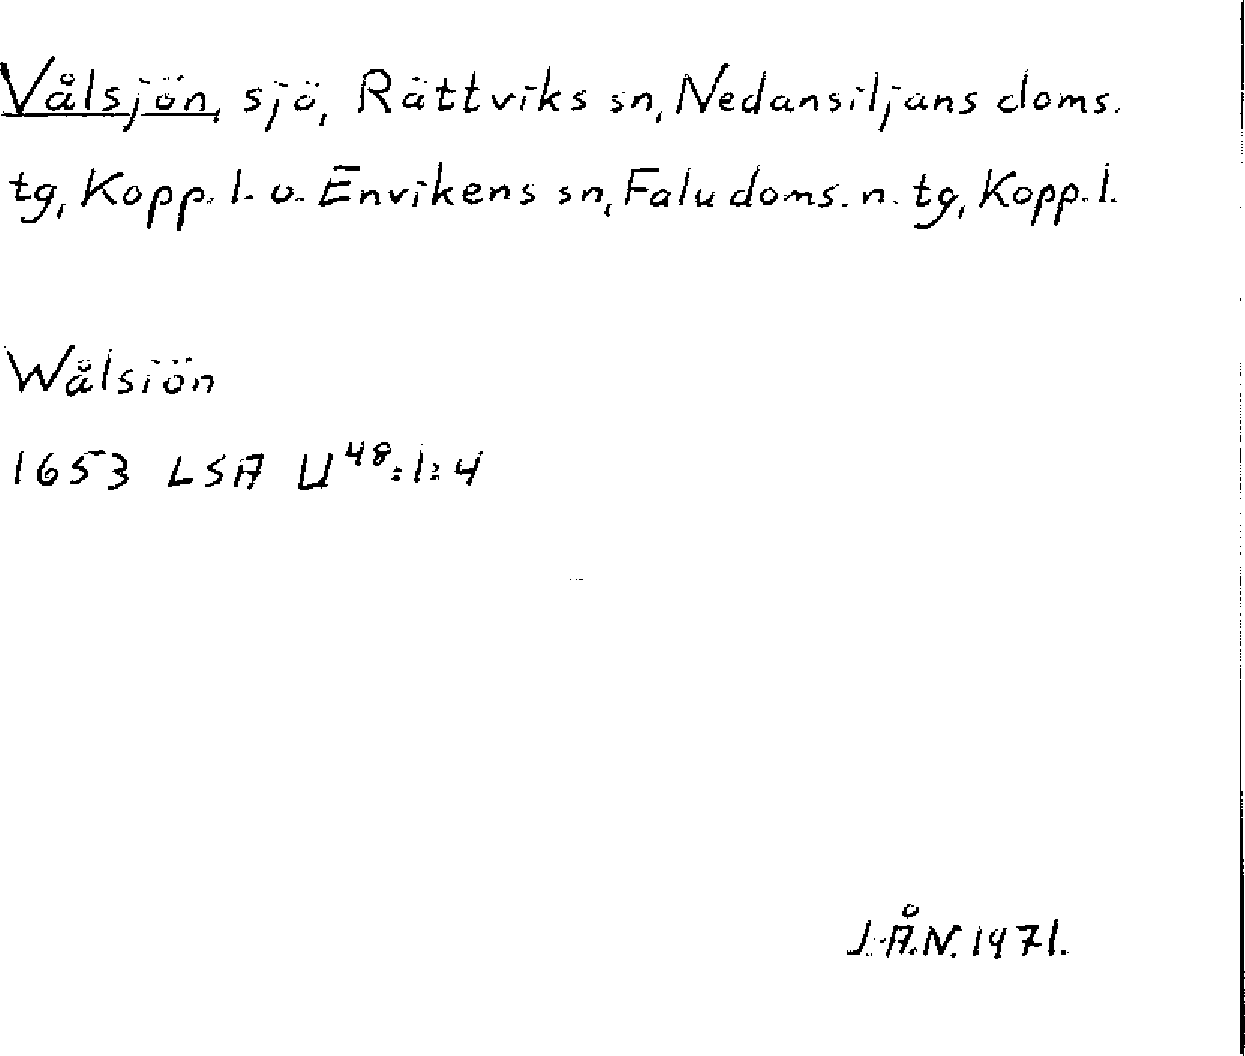 Vålsjön, sjö, Rättviks sn, Nedansiljans doms.
tg, Kopp. l. o. Envikens sn, Falu doms. n. tg, Kopp. l.
Wålsiön
1653 LSA U48:1:4
J.Å.N. 1971.